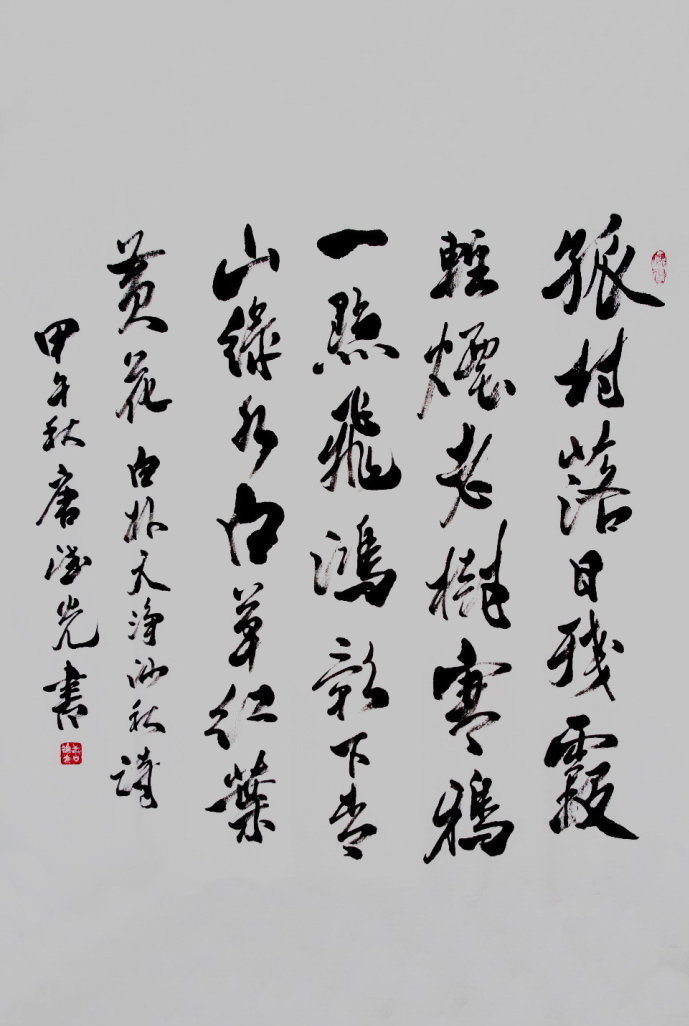 孤村落日殘霞
輕煙老樹寒鴉
一點飛鴻影下青
山綠水白草紅葉
黃花 白朴天淨沙秋詩
甲午秋唐澄光書